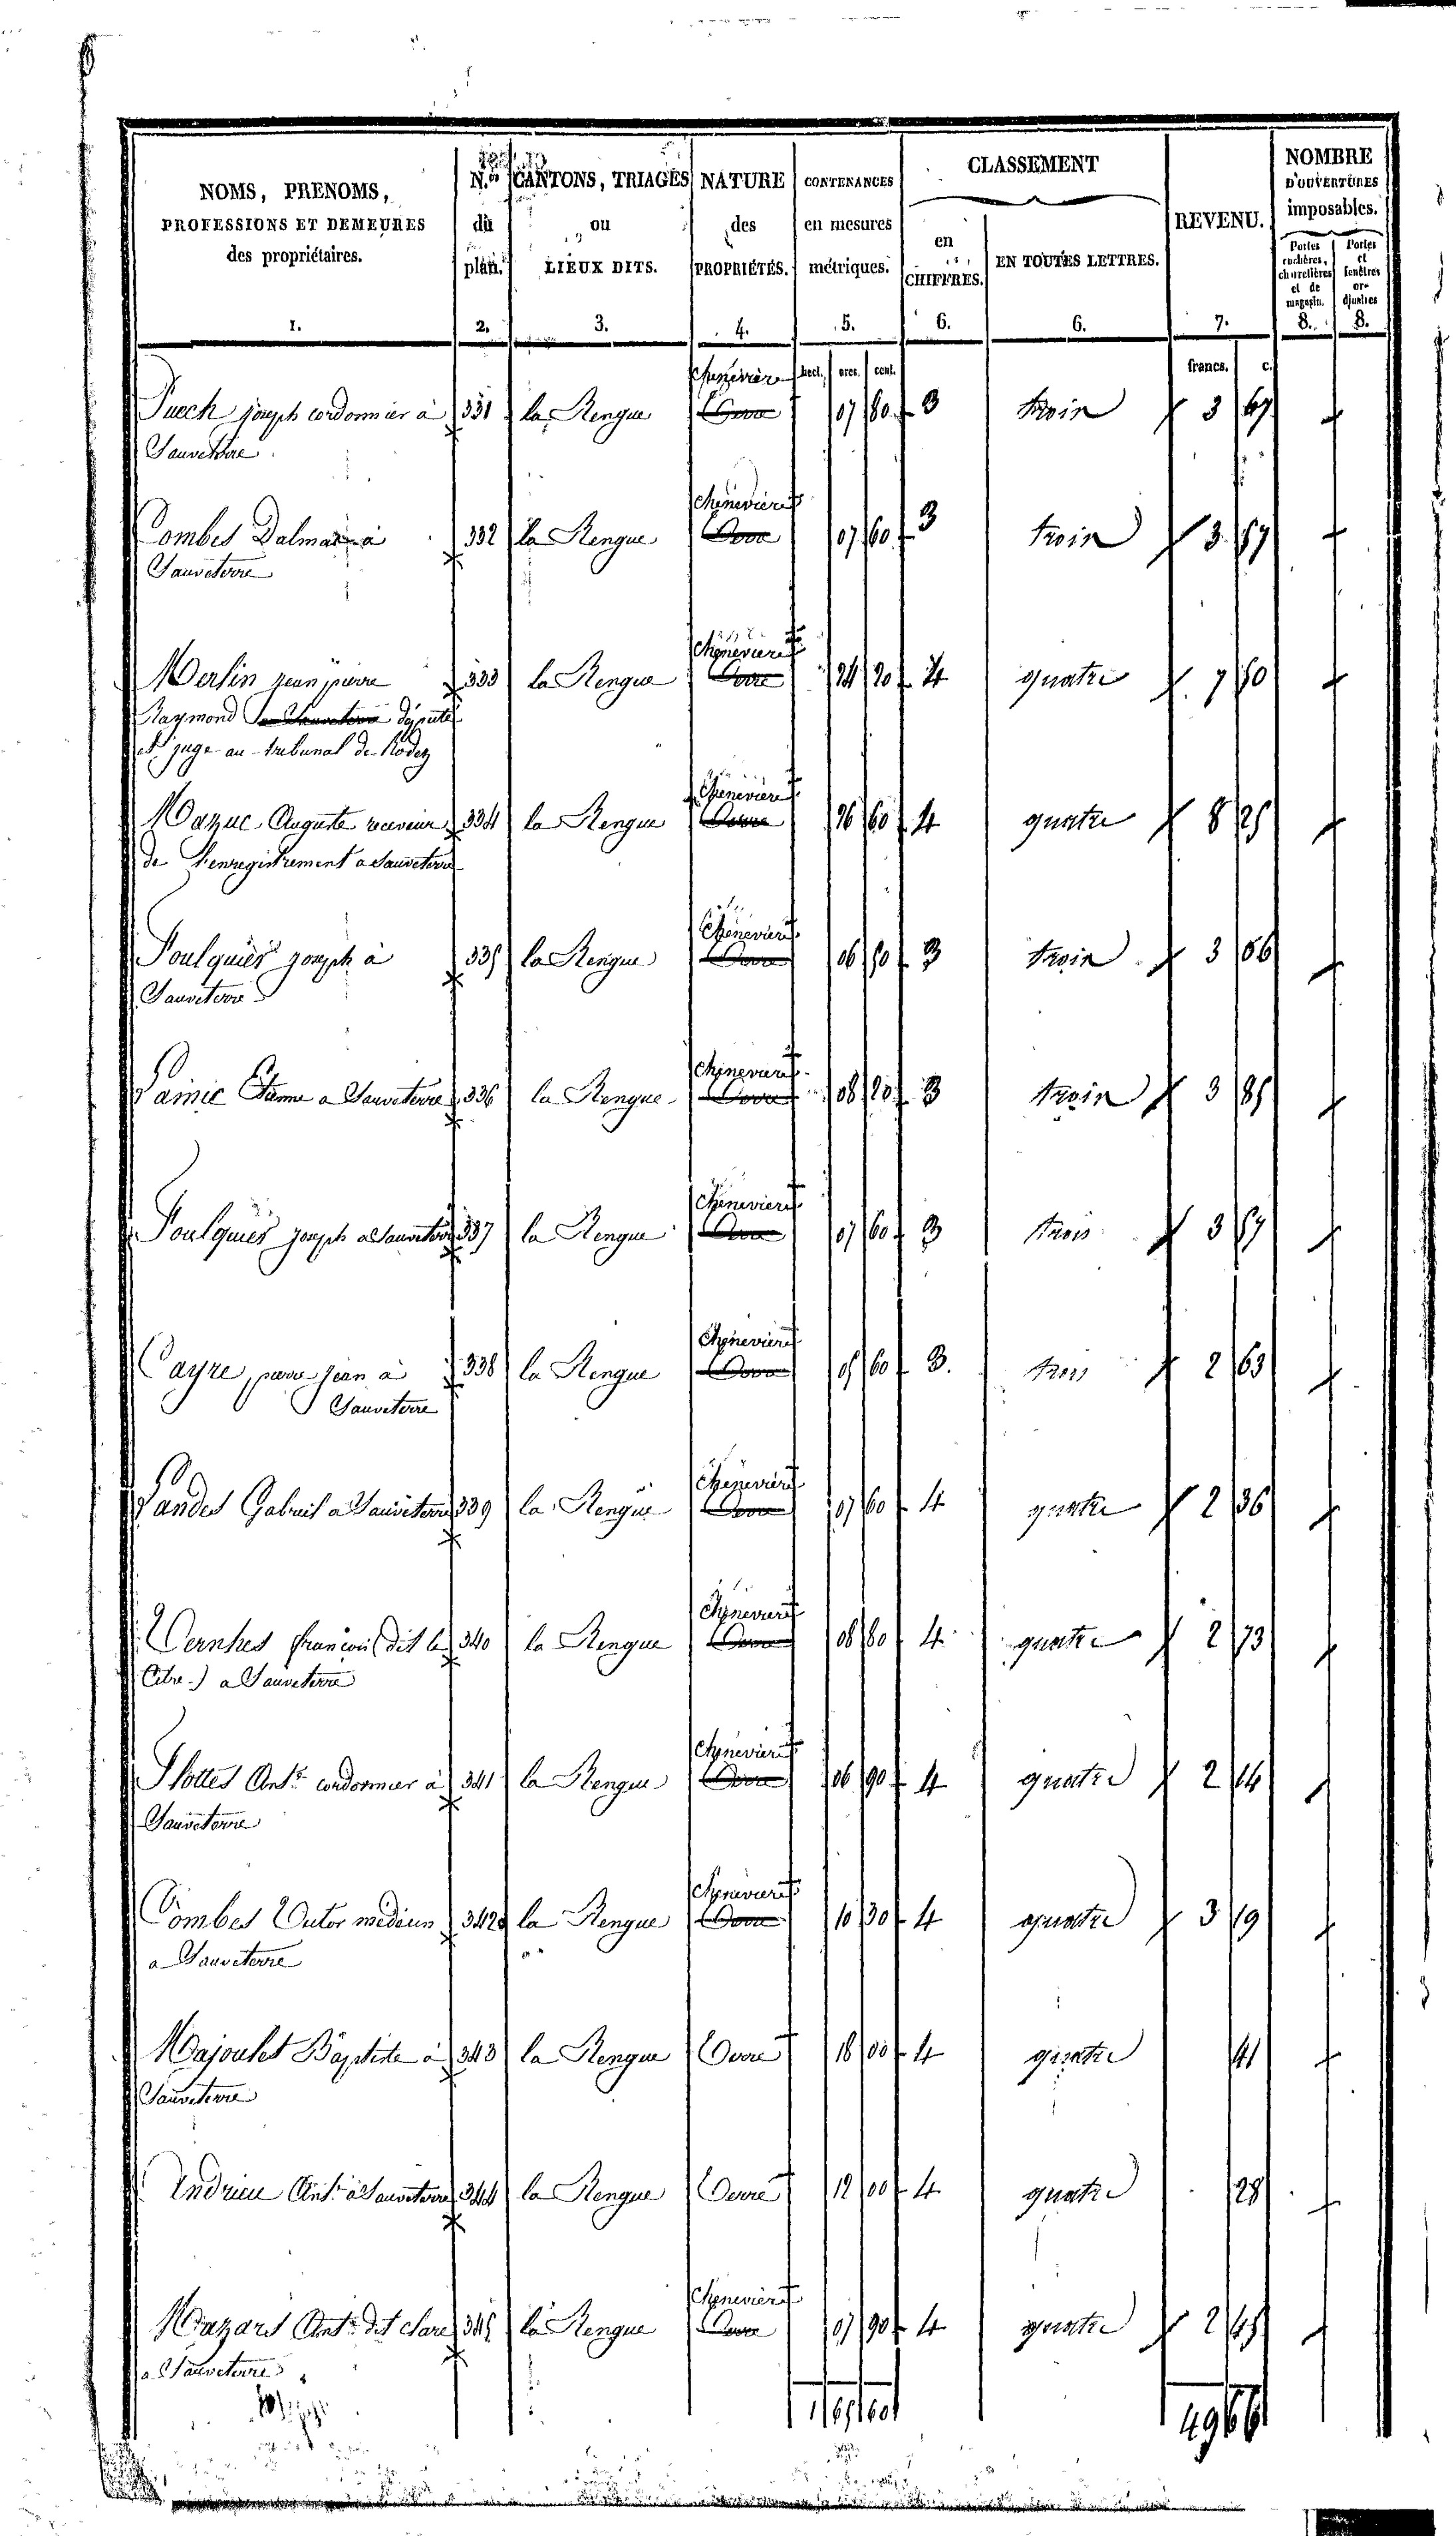 NOMS, PRENOMS,
PROFESSIONS ET DEMEURES
des propriétaires.
1.
N.os
du
plan.
2.
CANTONS, TRIAGES
ou
LIEUX DITS.
3.
NATURE
des
PROPRIÉTÉS.
4.
CONTENANCES
en mesures
métriques.
5.
CLASSEMENT
en
CHIFFRES.
6.
EN TOUTES LETTRES.
6.
REVENU.
7.
NOMBRE
D'OUVERTURES
imposables.
Portes
cochères,
charretières
et de
magasin.
8.
Portes
et
fenêtres
or-
djnaires
8.
hect. ares. cent. francs. c.
Chenevière
Puech joseph cordonnier à 331 la Rengue Terre 07 80 3 trois 3 67
Sauveterre
Chenevière
Combes Dalmas à 332 la Rengue Terre 07 60 3 trois 3 57
Sauveterre
Chenevière
Merlin jean pierre 333 la Rengue Terre 24 20 4 quatre 7 50
Raymond a Sauveterre député
et juge au tribunal de Rodez
Chenevière
Mazuc Auguste receveur 334 la Rengue Terre 26 60 4 quatre 8 25
de l'enregistrement a Sauveterre
Chenevière
Foulquiès joseph à 335 la Rengue Terre 06 50 3 trois 3 06
Sauveterre
Chenevière
Etienne a Sauveterre 336 la Rengue Terre 08 20 3 trois 3 85
Chenevière
Foulquiès joseph a Sauveterre 337 la Rengue Terre 07 60 3 trois 3 57
Chenevière
Cayre pierre jean à 338 la Rengue Terre 05 60 3. trois 2 63
Sauveterre
Chenevière
Landes Gabriel a Sauveterre 339 la Rengue Terre 07 60 4 quatre 2 36
Chenevière
Vernhes françois (dit le 340 la Rengue Terre 08 80 4 quatre 2 73
) a Sauveterre
Chenevière
Flottes Ant.e cordonnier à 341 la Rengue Terre 06 90 4 quatre 2 14
Sauveterre
Chenevière
Combes Victor médecin 342 la Rengue Terre 10 30 4 quatre 3 19
a Sauveterre
Majoulet Baptiste à 343 la Rengue Terre 18 00 4 quatre 41
Sauveterre
Andrieu Ant.e à Sauveterre 344 la Rengue Terre 12 00 4 quatre 28
Chenevière
Mazars Ant.e dit clare 345 la Rengue Terre 07 90 4 quatre 2 45
a Sauveterre
1 65 60 49 66